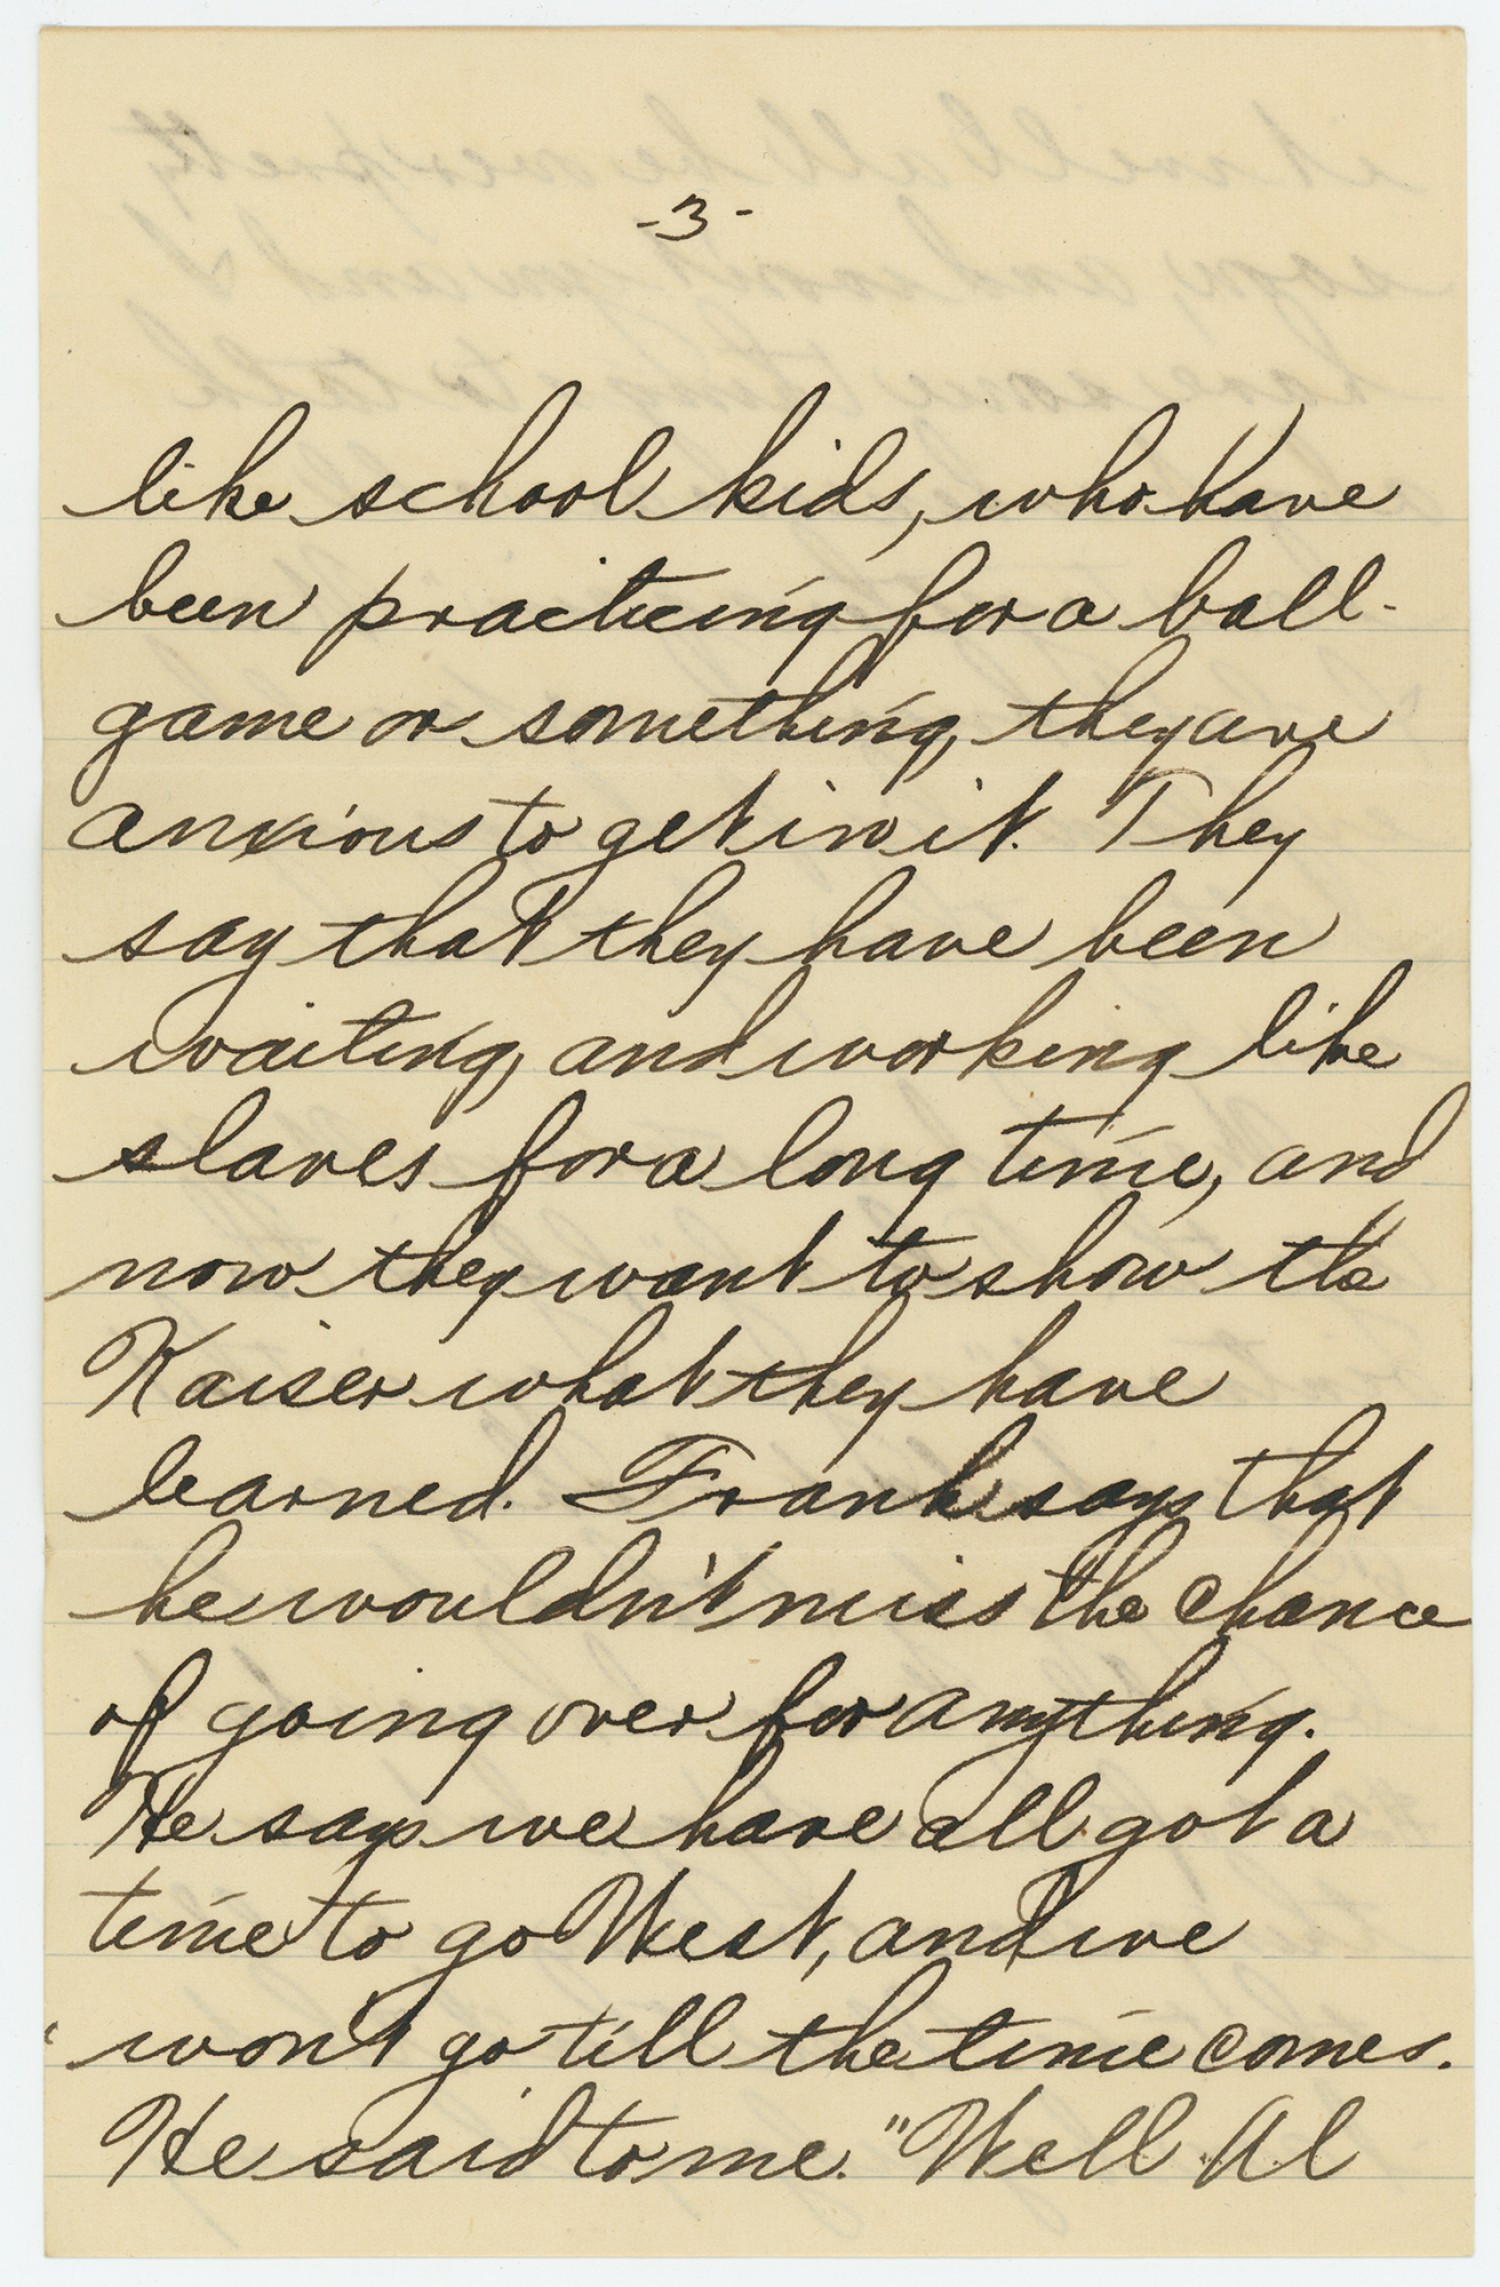 -3-
like school kids, who have
been practicing for a ball-
game or something, they are
anxious to get in it. They
say that they have been
waiting, and working like
slaves for a long time, and
now they want to show the
Kaiser what they have
learned. Frank says that
he wouldn't miss the chance
of going over for anything.
He says we have all got a
time to go West, and we
won't go till the time comes.
He said to me. "Well Al